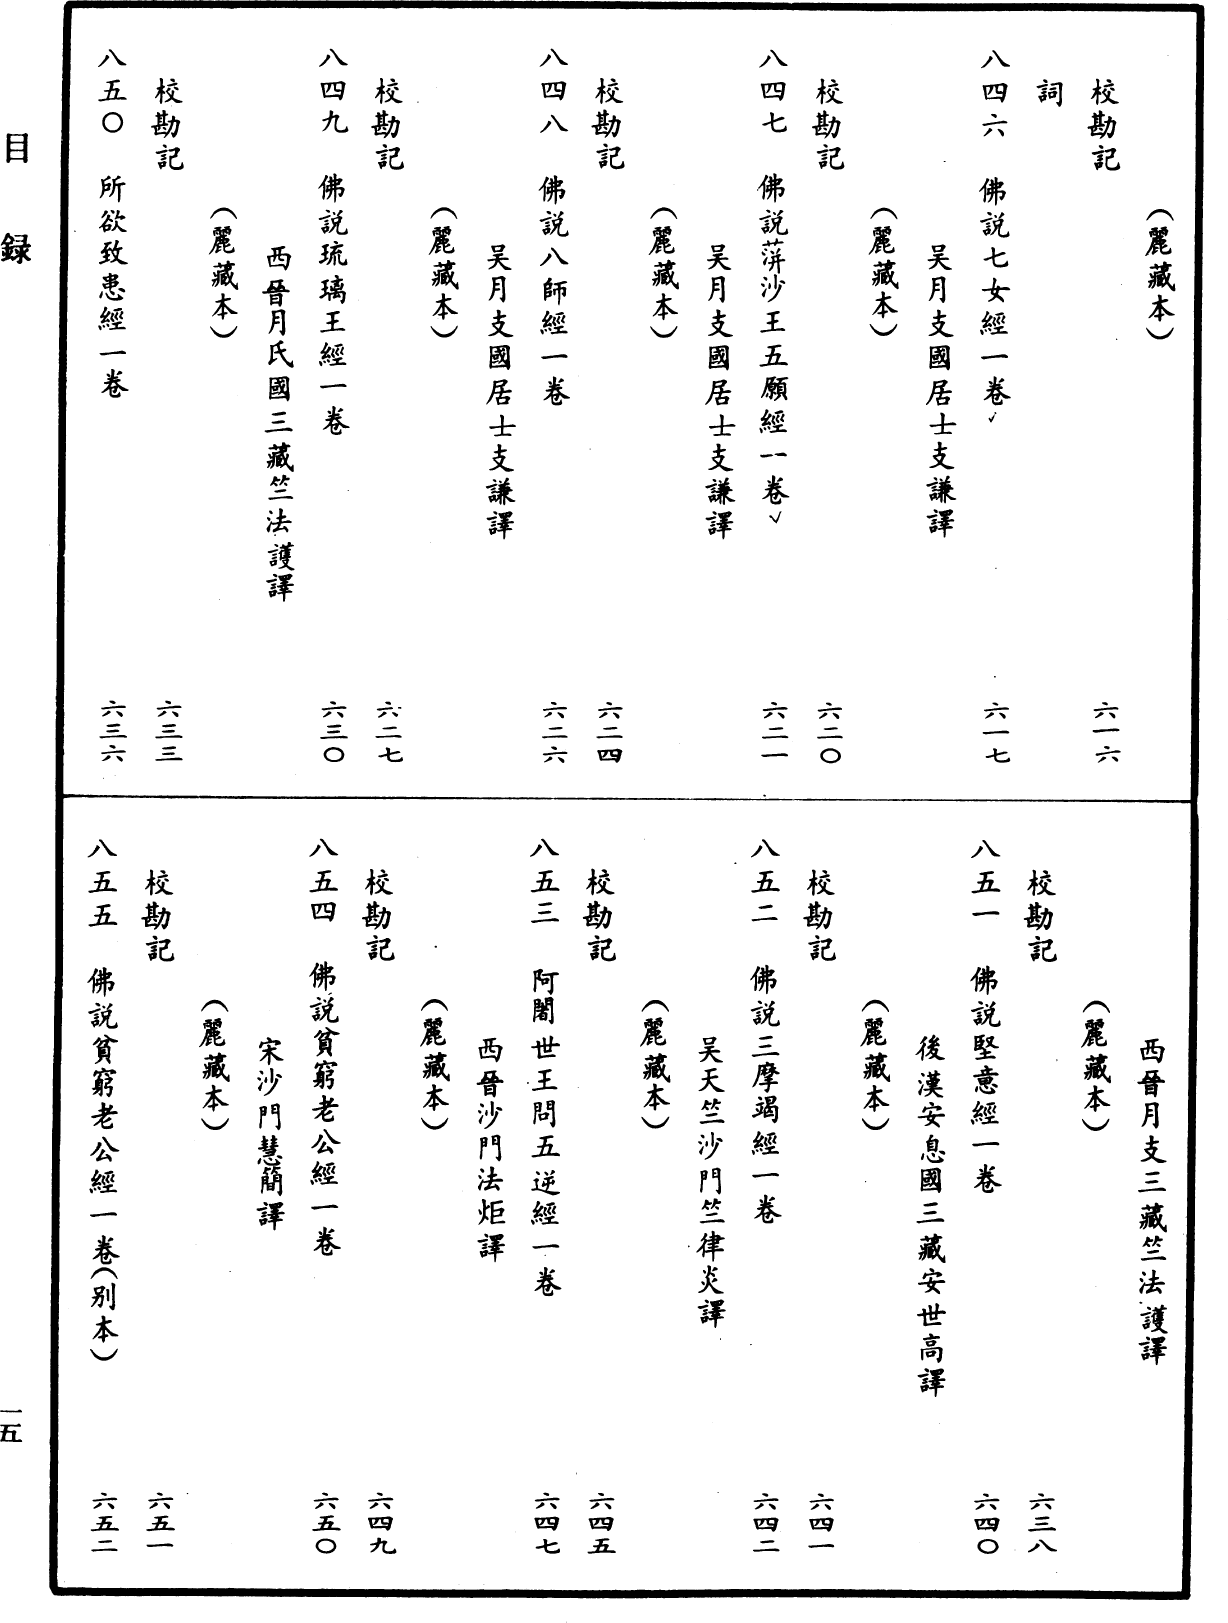 （麗藏本）
校勘記　六一六
詞
八四六　佛説七女經一卷　六一七
吴月支國居士支謙譯
（麗藏本）
校勘記　六二〇
八四七　佛説蓱沙王五願經一卷　六二一
吴月支國居士支謙譯
（麗藏本）
校勘記　六二四
八四八　佛説八師經一卷　六二六
吴月支國居士支謙譯
（麗藏本）
校勘記　六二七
八四九　佛説琉璃王經一卷　六三〇
西晉月氏國三藏竺法護譯
（麗藏本）
校勘記　六三三
八五〇　所欲致患經一卷　六三六
西晉月支三藏竺法護譯
（麗藏本）
校勘記　六三八
八五一　佛説堅意經一卷　六四〇
後漢安息國三藏安世高譯
（麗藏本）
校勘記　六四一
八五二　佛説三摩竭經一卷　六四二
吴天竺沙門竺律炎譯
（麗藏本）
校勘記　六四五
八五三　阿闍世王問五逆經一卷　六四七
西晉沙門法炬譯
（麗藏本）
校勘記　六四九
八五四　佛説貧窮老公經一卷　六五〇
宋沙門慧簡譯
（麗藏本）
校勘記　六五一
八五五　佛説貧窮老公經一卷（别本）　六五二
目録
一五